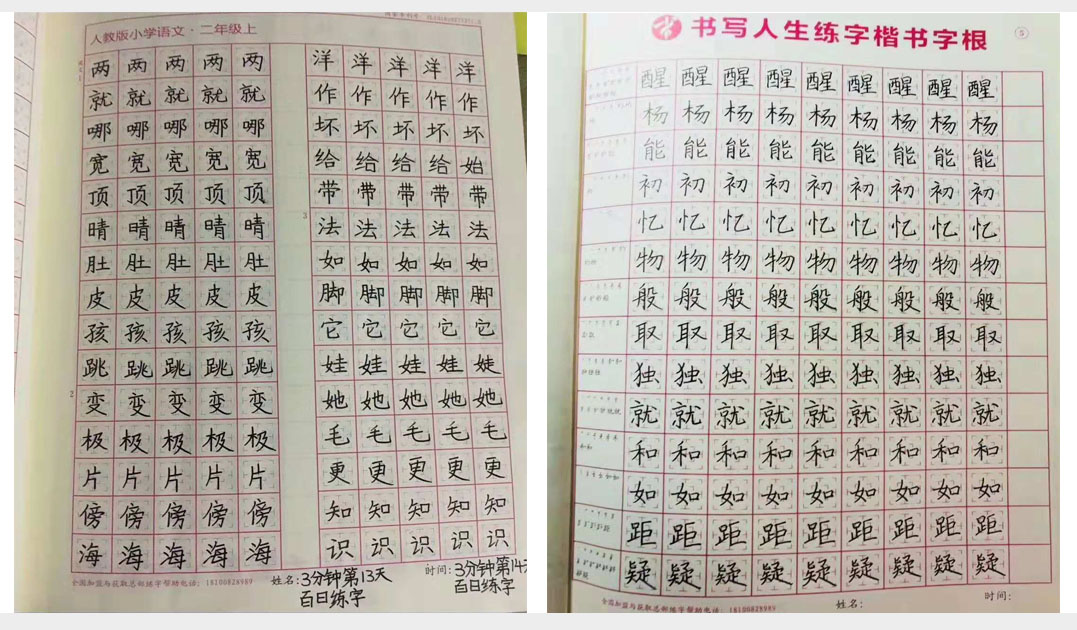 人教版小学语文·二年级上
两 两 两 两 两
就 就 就 就 就
哪 哪 哪 哪 哪
宽 宽 宽 宽 宽
顶 顶 顶 顶 顶
晴 晴 晴 晴 晴
肚 肚 肚 肚 肚
皮 皮 皮 皮 皮
孩 孩 孩 孩 孩
跳 跳 跳 跳 跳
2
变 变 变 变 变
极 极 极 极 极
片 片 片 片 片
傍 傍 傍 傍 傍
海 海 海 海 海
洋 洋 洋 洋 洋
作 作 作 作 作
坏 坏 坏 坏 坏
给 给 给 给 始
带 带 带 带 带
3
法 法 法 法 法
如 如 如 如 如
脚 脚 脚 脚 脚
它 它 它 它 它
娃 娃 娃 娃 娃
她 她 她 她 她
毛 毛 毛 毛 毛
更 更 更 更 更
知 知 知 知 知
识 识 识 识 识
全国加盟与获取总部练字帮助电话：18100828989
姓名：3分钟第13天
百日练字
时间：3分钟第14天
百日练字
书写人生练字楷书字根
5
醒 醒 醒 醒 醒 醒 醒 醒 醒
杨 杨 杨 杨 杨 杨 杨 杨 杨
能 能 能 能 能 能 能 能 能
初 初 初 初 初 初 初 初 初
忆 忆 忆 忆 忆 忆 忆 忆 忆
物 物 物 物 物 物 物 物 物
般 般 般 般 般 般 般 般 般
取 取 取 取 取 取 取 取 取
独 独 独 独 独 独 独 独 独
就 就 就 就 就 就 就 就 就
和 和 和 和 和 和 和 和 和
如 如 如 如 如 如 如 如 如
距 距 距 距 距 距 距 距 距
疑 疑 疑 疑 疑 疑 疑 疑 疑
全国加盟与获取总部练字帮助电话：18100828989
姓名：
时间：